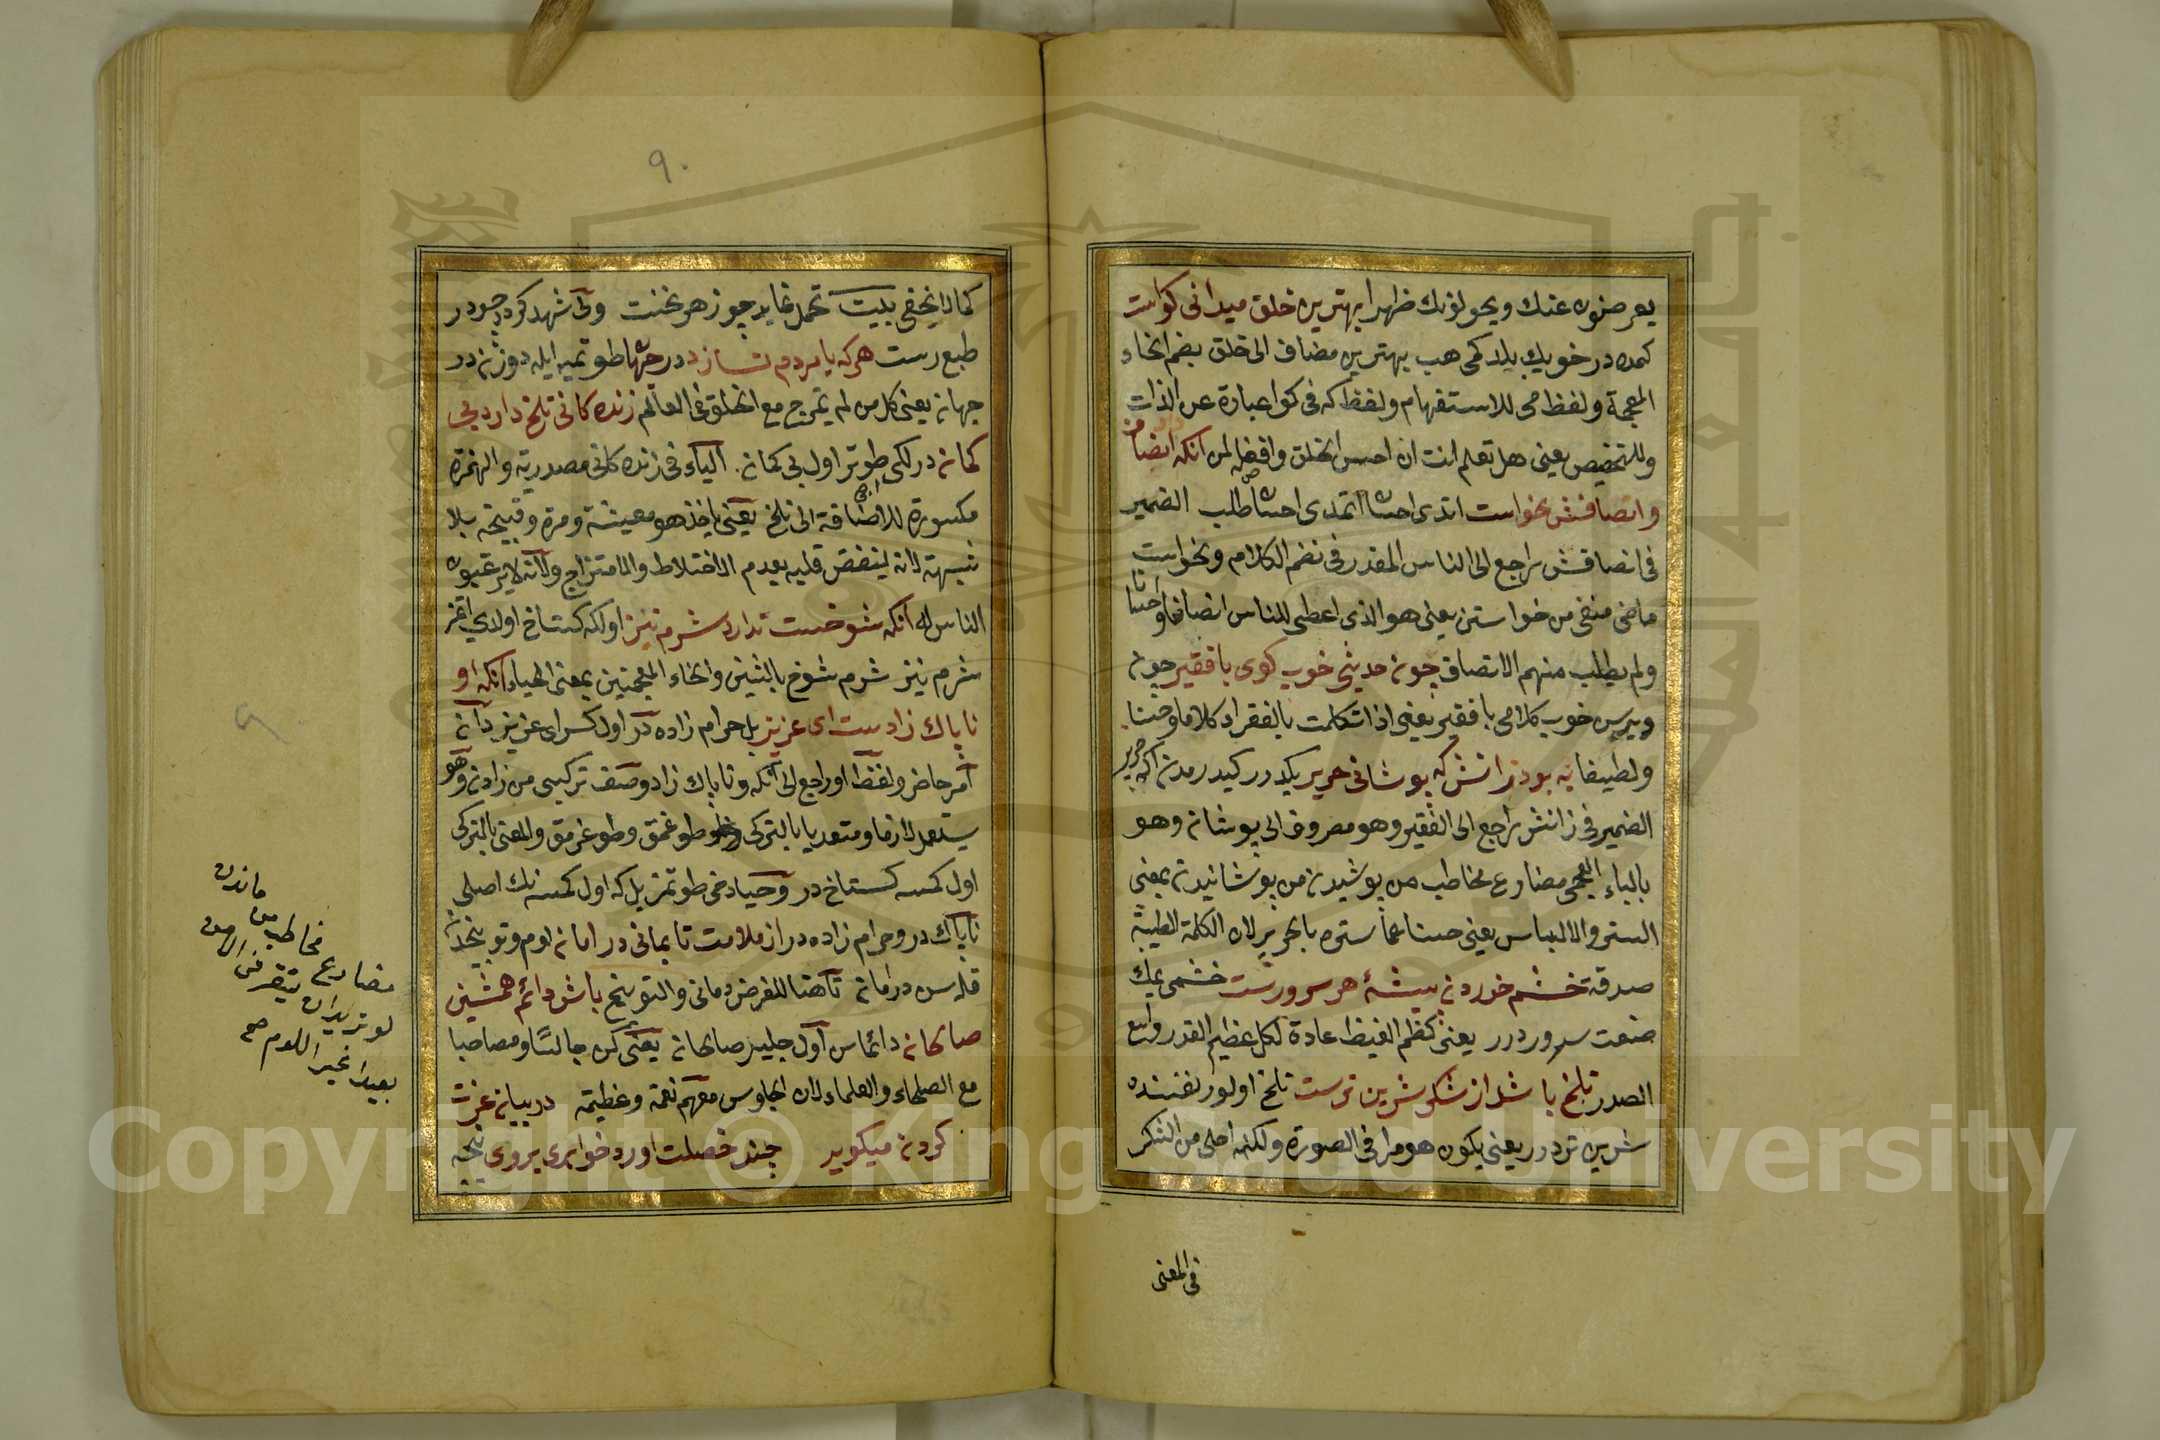 يعرضون عنك ويحولونك ظهرا بهترين خلق ميدانى كراست
كمده در خويك بلدكمى هب بهترين مضاف الى خلق بضم الخاء
المعجمة ولفظ مى للاستفهام ولفظ كه فى كرا عبارة عن الذات
وللتخصيص يعنى هل تعلم انت ان احسن الخلق وافضله لمن آنكه انصاف داد
وانصافش نخواست اتدى احسان اتمدى احسان طلب الضمير
فى انصافش راجع الى الناس المقدر فى نضم الكلام ونخواست
ماضى منفى من خواستن يعنى هو الذى اعطى للناس انصافا واحسانا
ولم يطلب منهم الانصاف چون حديثى خوب كوى با فقير چون
ويرسن خوب كلامى با فقير يعنى اذا تتكلمت بالفقراء كلاما وحسنا
ولطيفا به بود زانش كه پوشانى حرير يكدر كيدرمدن اكه حرير
الضمير فى زانش راجع الى الفقير وهو مصروف الى پوشان وهو
بالباء العجمى مضارع مخاطب من پوشيدن من پوشانيدن بمعنى
الستر والالباس يعنى حسنا مما ستره بالحرير لان الكلمة الطيبة
صدقة خشم خوردن پيشهٔ هر سرورست خشمى يمك
صنعت سروردر يعنى كظم الغيظ عادة لكل عظيم القدر واسع
الصدر تلخ باشد از شكر شرين ترست تلخ اولور نفسنده
شرين تردر يعنى يكون هو مرا فى الصورة ولكنه احلى من الشكر
فى المعنى
٩٠
كما لا يخفى بيت تحمل نمايد چو زهر نخست ولى شهد كردد چو در
طبع رست هر كه با مردم نسازد در جهان طوتميه ايله دوزن در
جهان يعنى كل من لم يمزج مع الخلق فى العالم زنده كانى تلخ دارد بى
كمان دركى طوتر اول بى كمان الياء فى زنده كانى مصدرية والهمزة
مكسورة للاضافة الى تلخ يعنى يأخذ هو معيشة ومرة وقبيحة بلا
شبهة لانه ينقص قلبه بعدم الاختلاط والامتزاج ولانه لا يرغبون
الناس له آنكه شوخست ندارد شرم نيز اولكه كستاخ اولدى اتمز
شرم نيز شرم شوخ بالشين والخاء المعجمتين بمعنى الحياء آنكه او
ناپاك زادست اى عزيز بل حرام زاده در اول كس اى عزيز دان
امر حاضر ولفظ او راجع الى آنكه وناپاك زاد وصف تركيبى من زادن وهو
يستعمل لازما ومتعديا بالتركى طوغمق وطوغرمق والمعنى بالتركى
اول كمسه كستاخ در وحيا دخى طوتمز بل كه اول كمسه نك اصلى
ناپاك در وحرام زاده در از ملامت تا بمانى در امان لوم وتوبيخدن
قله سن در امان تا هنا للغرض دمانى والتوبيخ باش دائم همشين
صالحان دائما سن اول جليس صالحان يعنى كن جالسا ومصاحبا
مع الصلحاء والعلماء لان الجلوس معهم نعمة وعظيمة در بيان عزت
كردن ميكويد چند خصلت اورد خوارى بروى نيجه
ماندن
مضارع مخاطب من
لو تريدان يتقر فى الامن
بعيدا غير اللوم صح